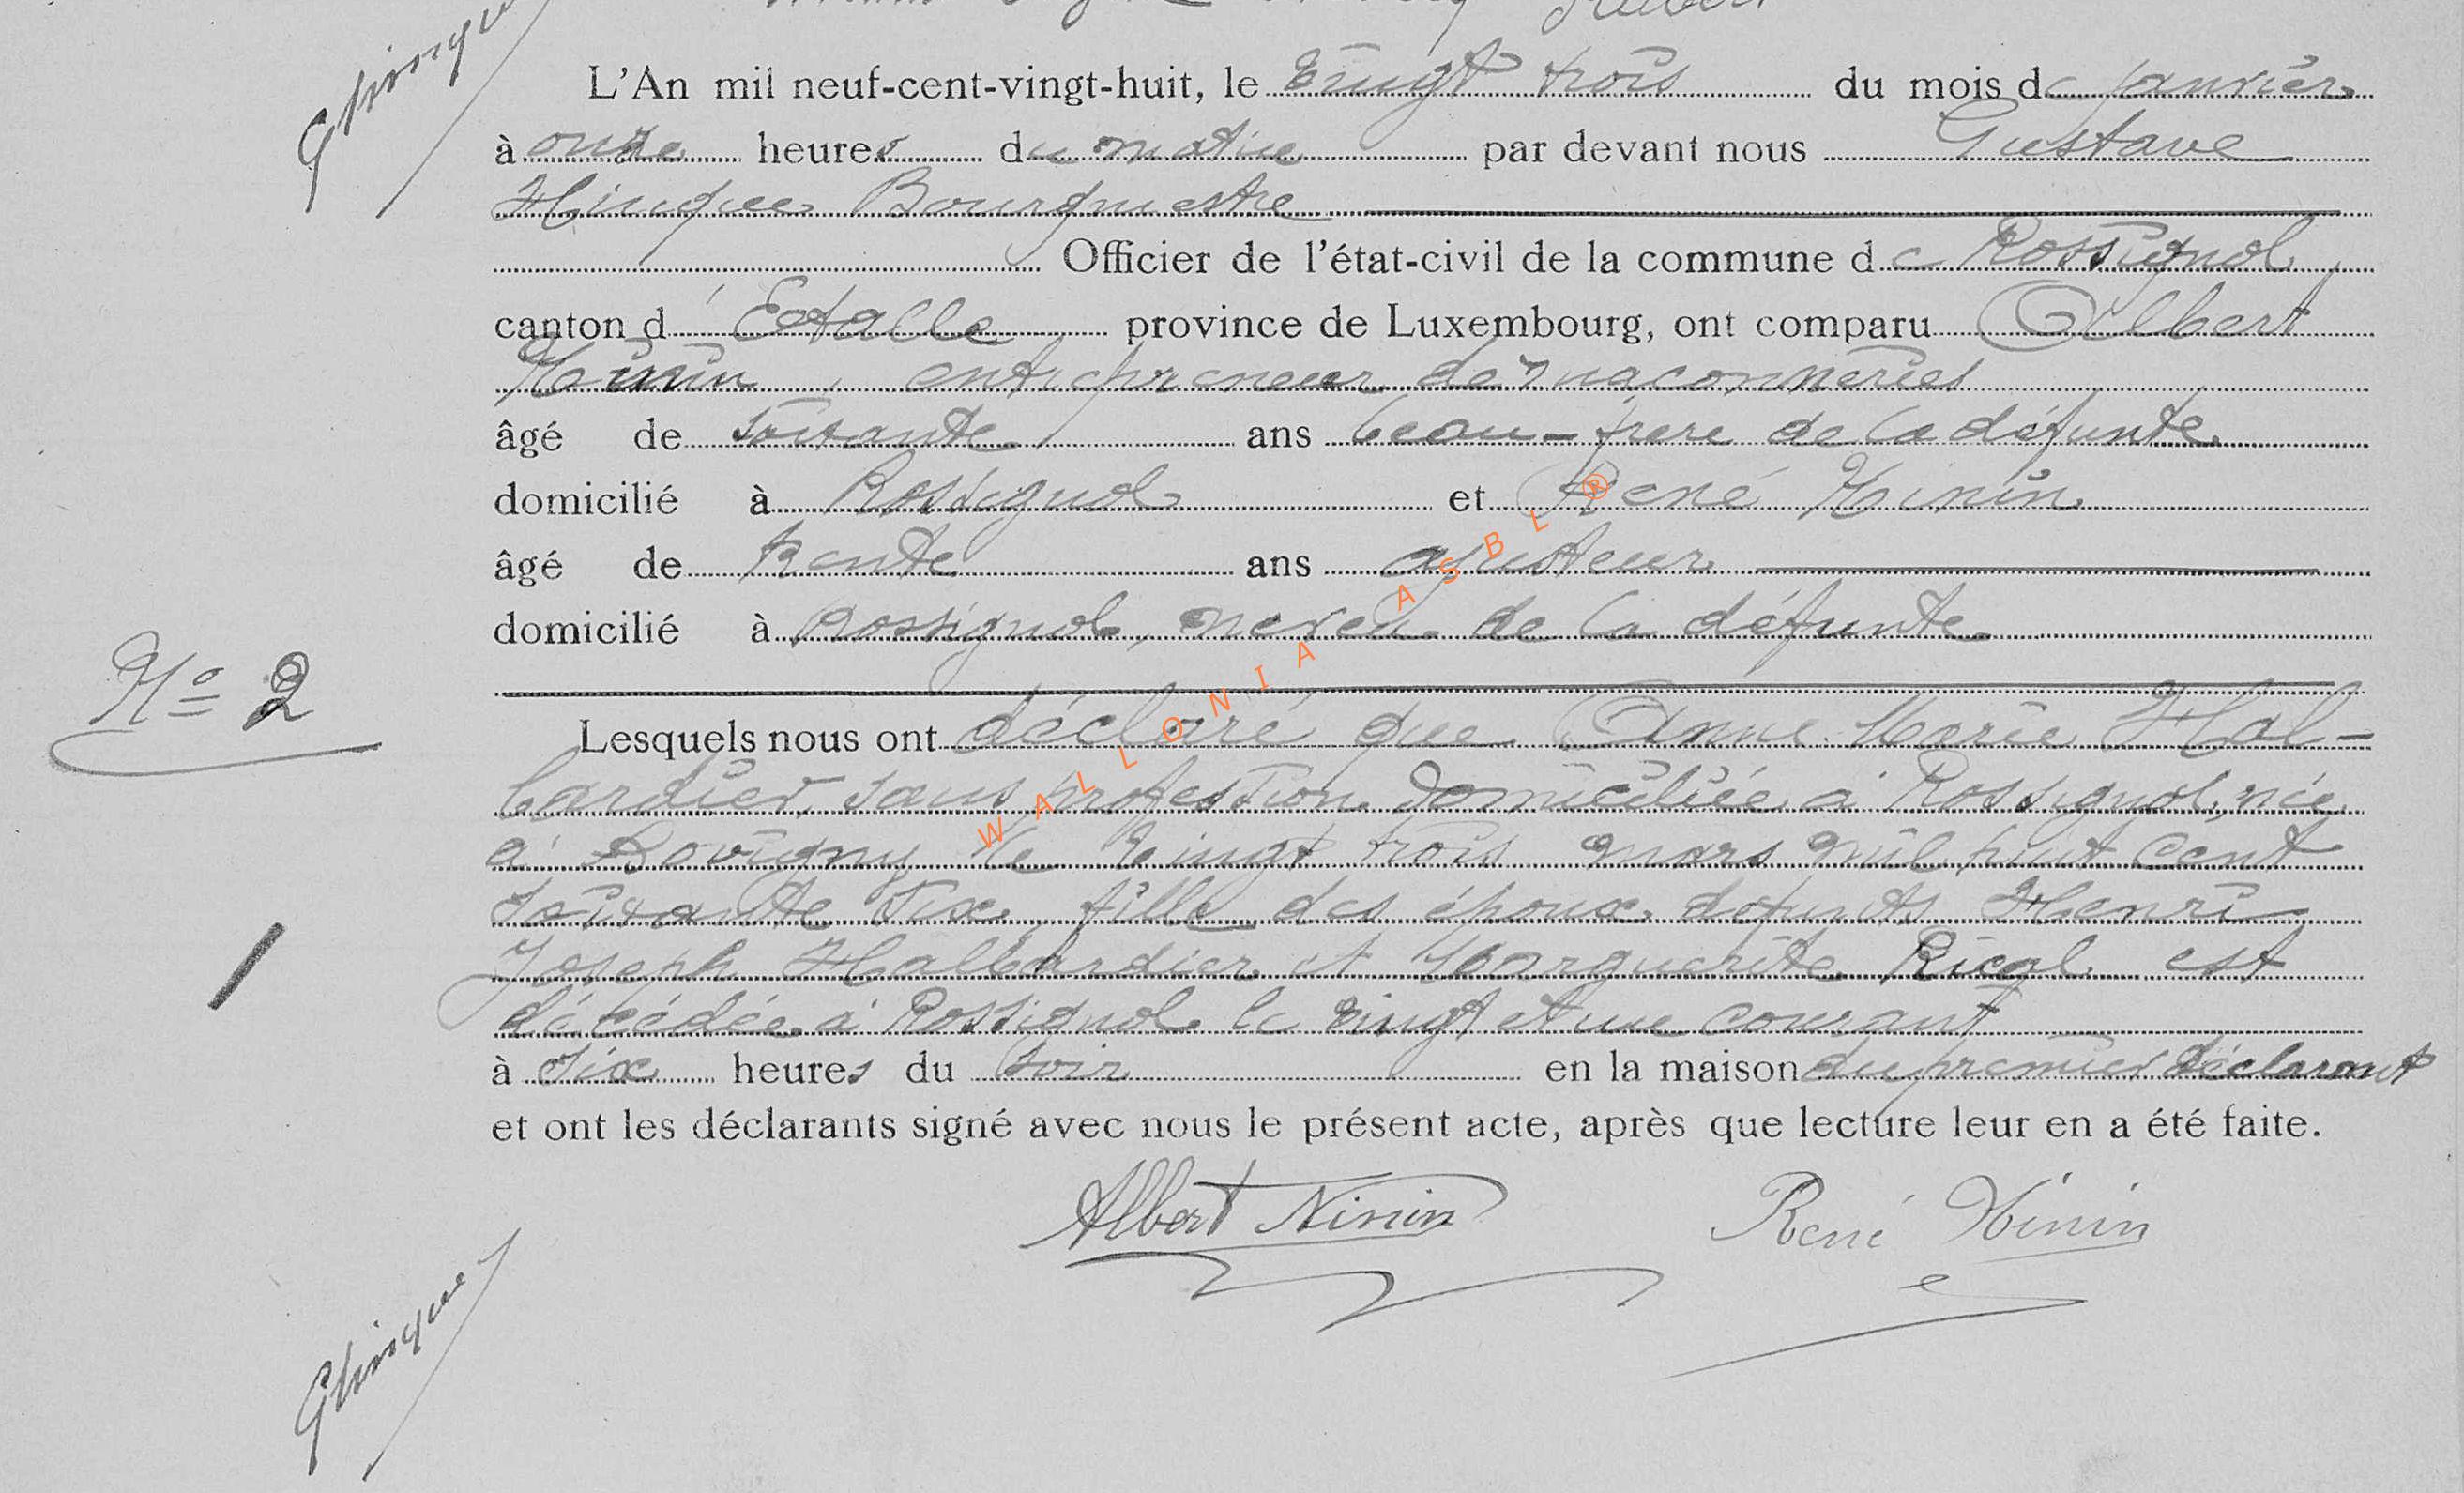 L'An mil neuf-cent-vingt-huit, le vingt trois du mois de janvier
à onze heures du matin par devant nous Gustave
Hinque Bourgmestre
Officier de l'état-civil de la commune de Rossignol
canton d'Etalle province de Luxembourg, ont comparu Albert
Ninin, entrepreneur de maçonneries
âgé de soixante ans beau-frère de la défunte
domicilié à Rossignol et René Ninin
âgé de trente ans ajusteur
domicilié à Rossignol, neveu de la défunte
No 2
Lesquels nous ont déclaré que Anne Marie Hal-
bardier, sans profession domiciliée à Rossignol, née
à le vingt trois mars mil huit cent
soixante six, fille des époux défunts Henri
Joseph Halbardier et Marguerite Rical est
décédée à Rossignol le vingt et une courant
à six heures du soir en la maison du premier déclarant
et ont les déclarants signé avec nous le présent acte, après que lecture leur en a été faite.
Albert Ninin René Ninin
GHinque
WALLONIA ASBL ®